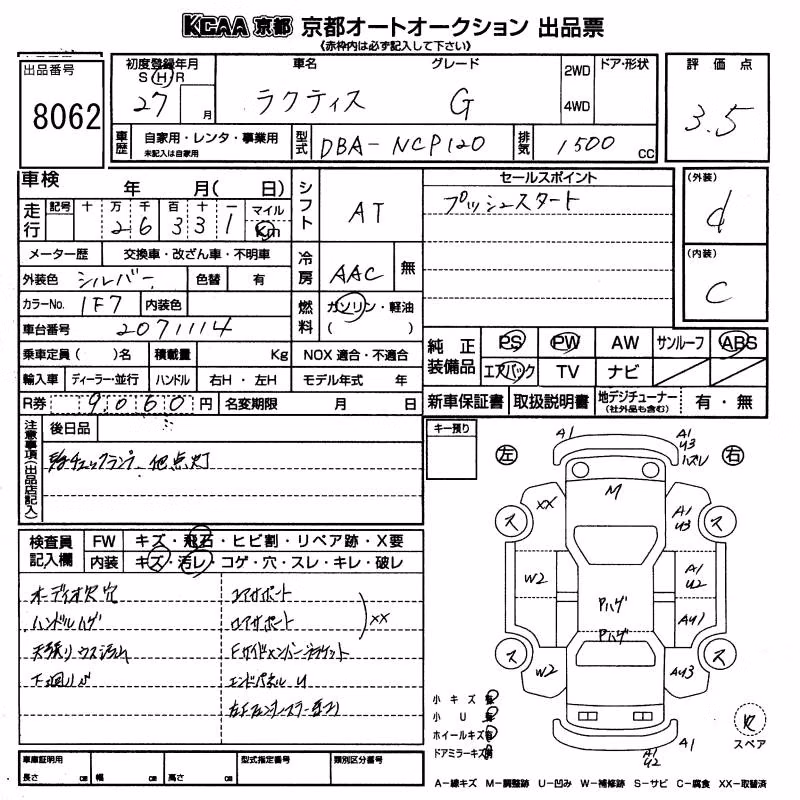 KCAA 京都 京都オートオークション 出品票
《赤枠内は必ず記入して下さい》
出品番号
8062
初度登録年月
S H R
27 月
車名
ラクティス
グレード
G
2WD
4WD
ドア・形状
評価点
3.5
車歴 自家用・レンタ・事業用
未記入は自家用
型式 DBA-NCP120
排気 1500 cc
車検 年 月( 日)
走行 記号 十 万 千 百 十 一 マイル
2 6 3 3 1 Km
シフト AT
メーター歴 交換車・改ざん車・不明車
外装色 シルバー 色替 有
冷房 AAC 無
カラーNo. 1F7 内装色
燃料 ガソリン・軽油
( )
車台番号 2071114
乗車定員( )名 積載量 Kg NOX 適合・不適合
輸入車 ディーラー・並行 ハンドル 右H・左H モデル年式 年
R券 9060円 名変期限 月 日
セールスポイント
プッシュスタート
(外装)
d
(内装)
C
純正装備品 PS PW AW サンルーフ ABS
エアバック TV ナビ
新車保証書 取扱説明書 地デジチューナー(社外品も含む) 有・無
注意事項(出品店記入)
後日品
チェックランプ 他点灯
キー預り
検査員記入欄
FW キズ・飛石・ヒビ割・リペア跡・X要
内装 キズ・汚レ・コゲ・穴・スレ・キレ・破レ
オーディオ欠 穴
ハンドルハゲ
天張りウス汚れ
下廻りサビ
コアサポート
ロアサポート
XX
Fサイドメンバーブラケット
エンドパネル U
左 右
A1
A1
U3
ハズレ
XX
M
A1
U3
ス
ス
W2
A1
U2
Pハゲ
Pハゲ
AU1
ス
ス
W2
AU3
A1
U2
A1
小キズ有
小U有
ホイールキズ有
ドアミラーキズ有
スペア
車庫証明用
長さ cm 幅 cm 高さ cm
型式指定番号
類別区分番号
A−線キズ M−調整跡 U−凹み W−補修跡 S−サビ C−腐食 XX−取替済